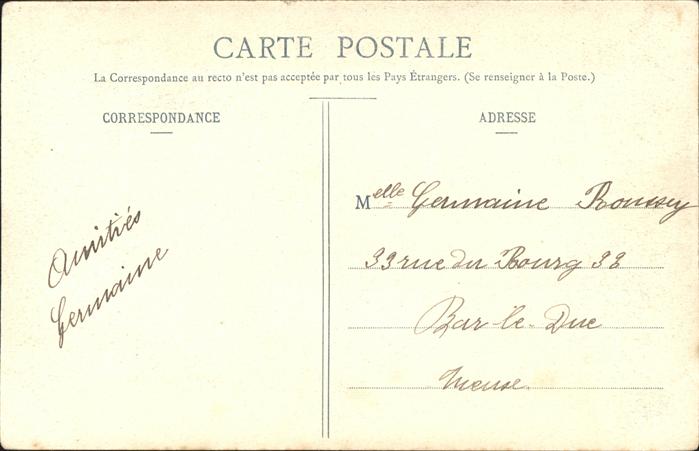 CARTE POSTALE
La Correspondance au recto n'est pas acceptée par tous les Pays Étrangers. (Se renseigner à la Poste.)
CORRESPONDANCE
Amitiés
Germaine
ADRESSE
Melle Germaine Roussey
33 rue du Bourg 33
Bar-le-Duc
Meuse